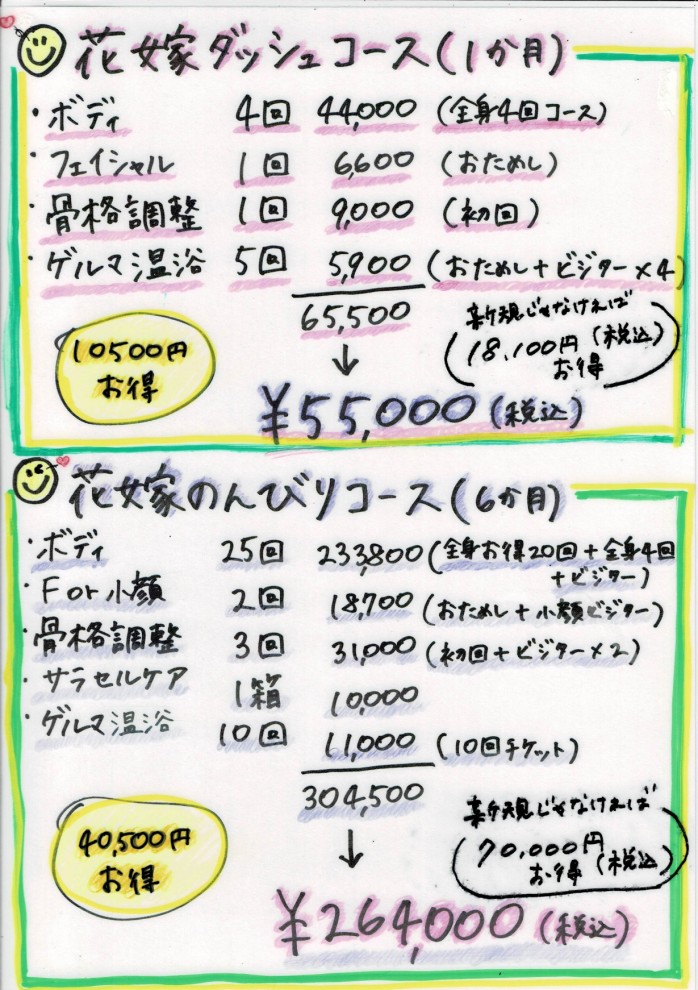 花嫁ダッシュコース(1か月)
・ボディ 4回 44,000 (全身4回コース)
・フェイシャル 1回 6,600 (おためし)
・骨格調整 1回 9,000 (初回)
・ゲルマ温浴 5回 5,900 (おためし+ビジター×4)
65,500
↓
10500円
お得
新規じゃなければ
18,100円(税込)
お得
¥55,000(税込)
花嫁のんびりコース(6か月)
・ボディ 25回 233,800(全身お得20回+全身4回
+ビジター)
・For小顔 2回 18,700 (おためし+小顔ビジター)
・骨格調整 3回 31,000 (初回+ビジター×2)
・サラセルケア 1箱 10,000
・ゲルマ温浴 10回 11,000 (10回チケット)
304,500
↓
40,500円
お得
新規じゃなければ
70,000円
お得(税込)
¥264,000(税込)